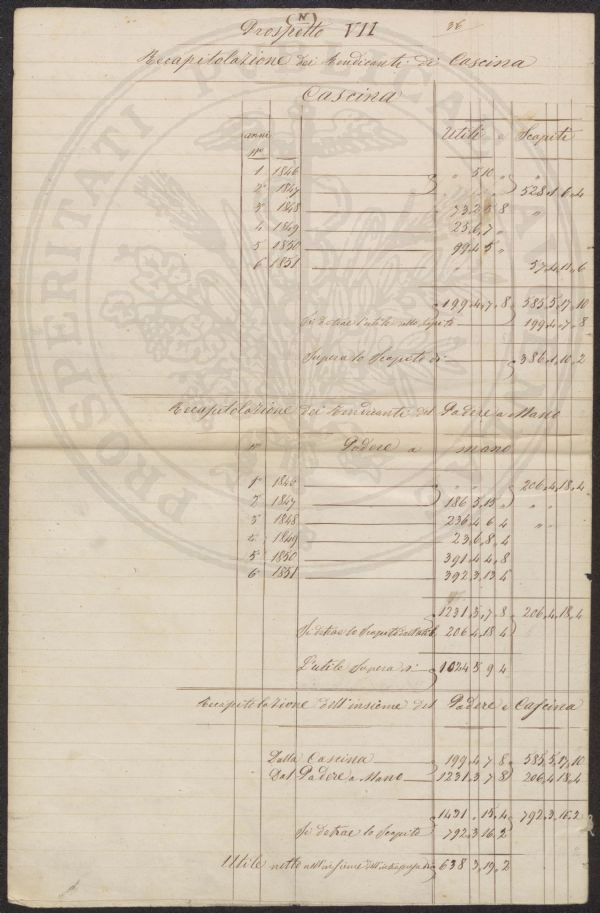 (N)
Prospetto VII 36
Recapitolazione dei Rendiconti di Cascina
Cascina
anni Utili e Scapiti
Nº
1 1846 " 510 "
2 1847 528.1.6.4
3 1848 73.2.5 8
4 1849 25.6.7 "
5 1850 99.4.5 "
6 1851 57.4.11.6
199.4.7.8 585.5.17.10
Si detrae l'utile dallo Scapito 199.4.7.8
Supera lo Scapito di 386.1.10.2
Recapitolazione dei Rendiconti del Podere a Mano
Nº Podere a mano
1º 1846 206.4.18.4
2 1847 186 5.15
3 1848 236 4 6 4
4 1849 23 6.8.4
5º 1850 391 4.4.8
6º 1851 392.3.13 4
1231.3.7.8 206.4.18.4
Si detrae lo Scapito 206.4.18 4
L'utile Supera di 1024 5 9 4
Recapitolazione dell'insieme del Podere e Cascina
Dalla Cascina 199.4 7 8 585.5.17.10
Dal Podere a Mano 1231.3.7 8 206.4.18.4
1431 " 15.4 792.3.16.2
Si detrae lo Scapito 792.3 16.2
Utile netto nell'insieme 638 3.19.2
PROSPERITATI PUBLICAE